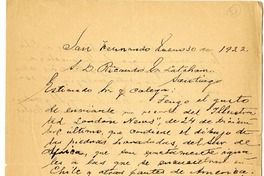 San Fernando Enero 30 de 1922.
S. D. Ricardo E. Latcham.
Santiago
Estimado Sr y colega:
Tengo el gusto
de enviarle un recorte del "Illustra
ted London News", de 24 de Diciem
bre último, que contiene el dibujo de
las piedras horadadas, del Sur de
Africa, que son exactamente iguales
a las que se encuentran en
Chile y otras partes de America.